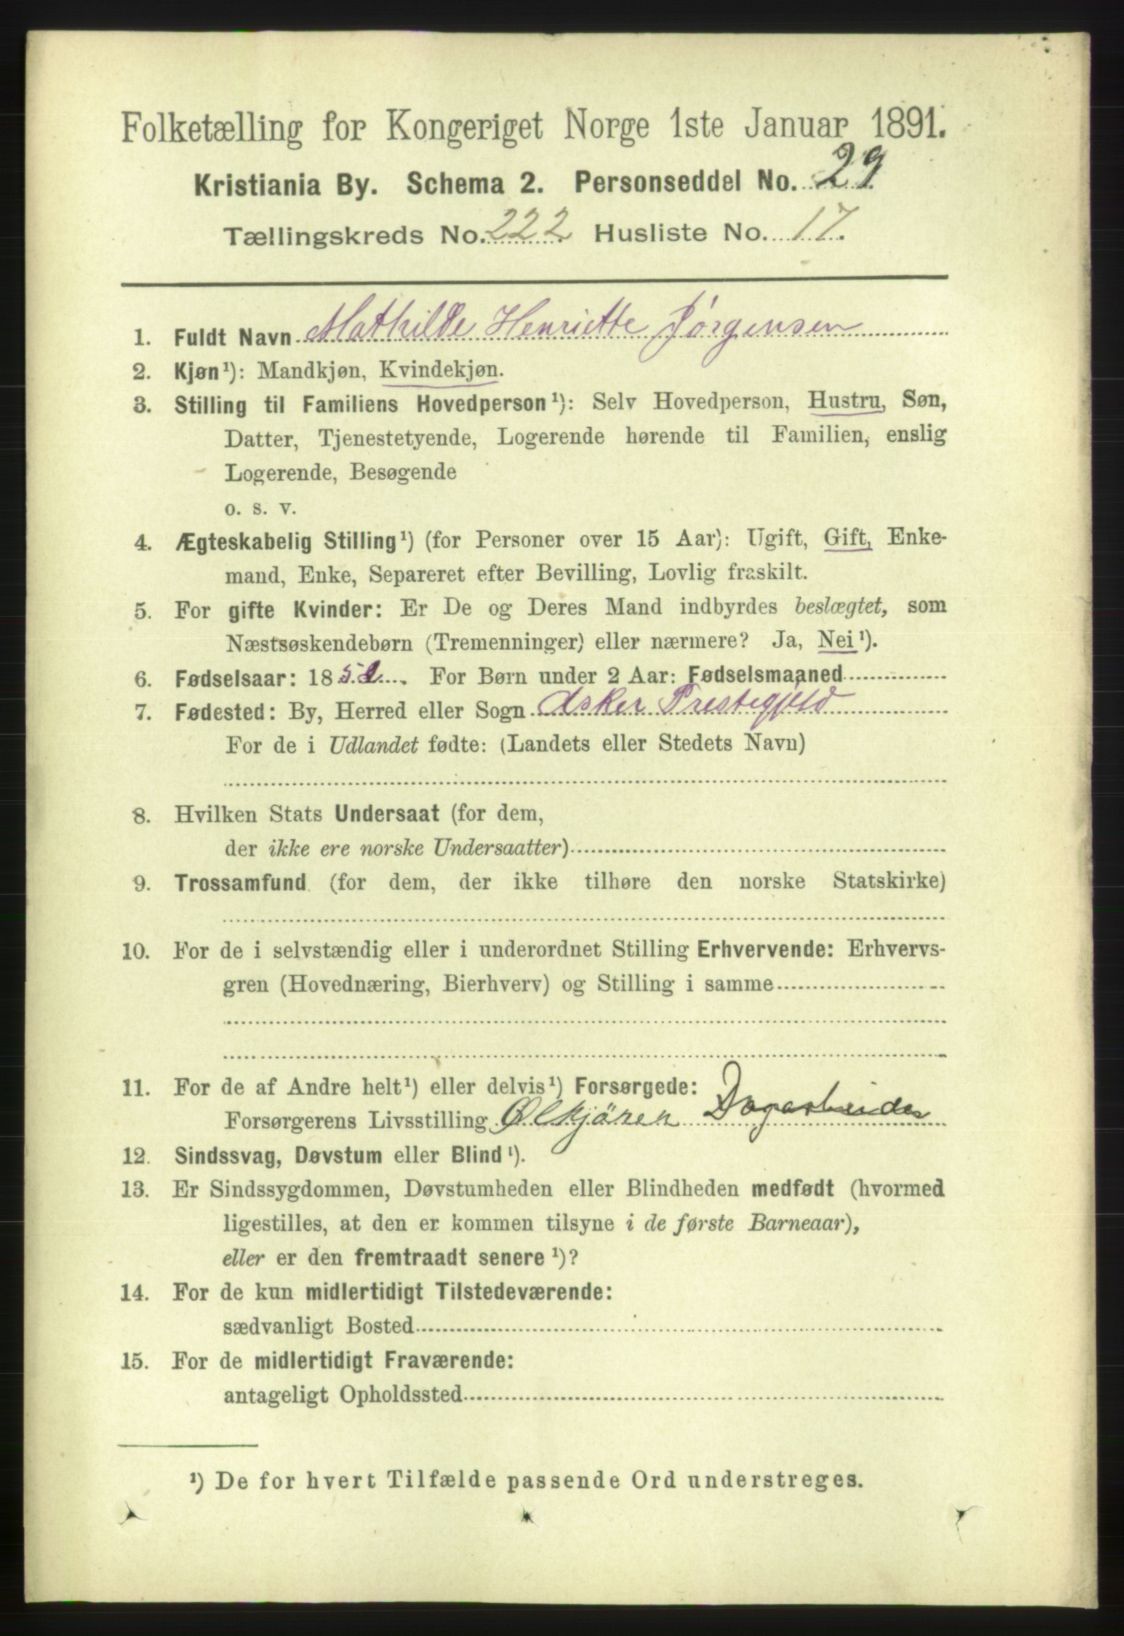 Folketælling for Kongeriget Norge 1ste Januar 1891.
Kristiania By. Schema 2. Personseddel No. 29
Tællingskreds No. 222 Husliste No. 17.
1. Fuldt Navn Mathilde Henriette Jørgensen
2. Kjøn¹): Mandkjøn, Kvindekjøn.
3. Stilling til Familiens Hovedperson¹): Selv Hovedperson, Hustru, Søn,
Datter, Tjenestetyende, Logerende hørende til Familien, enslig
Logerende, Besøgende
o. s. v.
4. Ægteskabelig Stilling¹) (for Personer over 15 Aar): Ugift, Gift, Enke-
mand, Enke, Separeret efter Bevilling, Lovlig fraskilt.
5. For gifte Kvinder: Er De og Deres Mand indbyrdes beslægtet, som
Næstsøskendebørn (Tremenninger) eller nærmere? Ja, Nei¹).
6. Fødselsaar: 1852. For Børn under 2 Aar: Fødselsmaaned
7. Fødested: By, Herred eller Sogn Asker Prestegjeld
For de i Udlandet fødte: (Landets eller Stedets Navn)
8. Hvilken Stats Undersaat (for dem,
der ikke ere norske Undersaatter)
9. Trossamfund (for dem, der ikke tilhøre den norske Statskirke)
10. For de i selvstændig eller i underordnet Stilling Erhvervende: Erhvervs-
gren (Hovednæring, Bierhverv) og Stilling i samme
11. For de af Andre helt¹) eller delvis¹) Forsørgede:
Forsørgerens Livsstilling Ølkjören Dagarbeider
12. Sindssvag, Døvstum eller Blind¹).
13. Er Sindssygdommen, Døvstumheden eller Blindheden medfødt (hvormed
ligestilles, at den er kommen tilsyne i de første Barneaar),
eller er den fremtraadt senere¹)?
14. For de kun midlertidigt Tilstedeværende:
sædvanligt Bosted
15. For de midlertidigt Fraværende:
antageligt Opholdssted
¹) De for hvert Tilfælde passende Ord understreges.